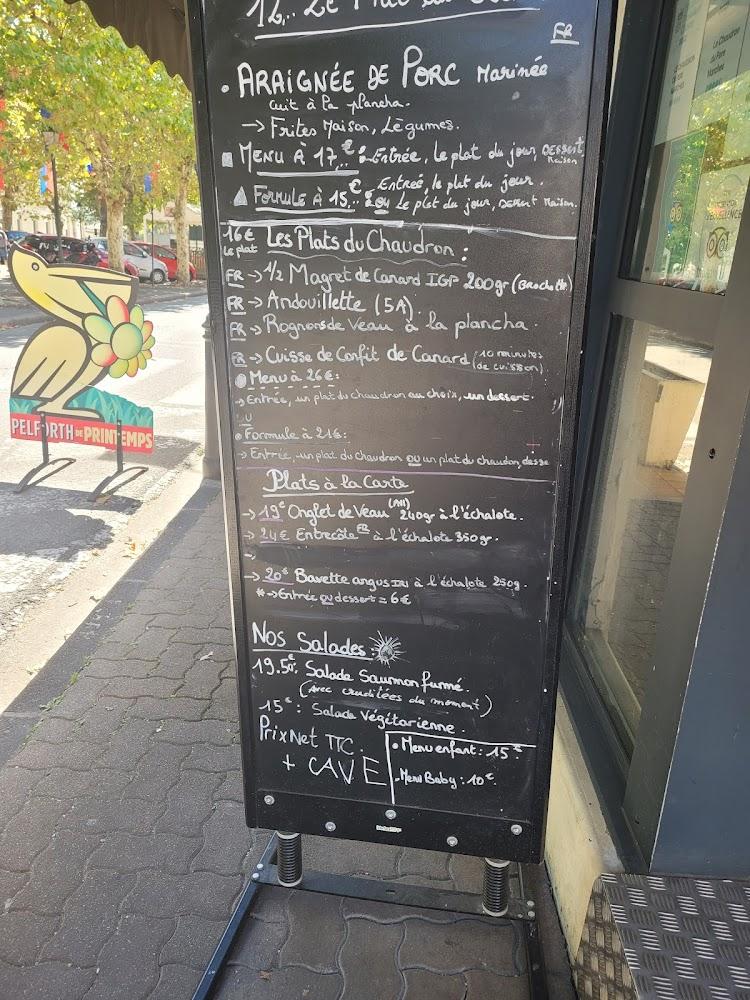 12,.. Le Plat du
FR
• ARAIGNÉE DE PORC Marinée
cuit à la plancha.
→ Frites Maison, Légumes.
MENU À 17,..€ : Entrée, le plat du jour, DESSERT Maison
FORMULE À 15,..€ Entrée, le plat du jour.
ou le plat du jour, DESSERT Maison.
16€ Le plat Les Plats du Chaudron :
FR → 1/2 Magret de Canard IGP 200gr (Brochette)
FR → Andouillette (5A)
FR → Rognons de Veau à la plancha.
FR → Cuisse de Confit de Canard (10 minutes de cuisson)
Menu à 26€ :
→ Entrée, un plat du chaudron au choix, un dessert.
OU
Formule à 21€ :
→ Entrée, un plat du chaudron ou un plat du chaudron, desse
Plats à la Carte
→ 19€ Onglet de Veau 240gr à l'échalote.
→ 24€ Entrecôte FR à l'échalote 350gr.
→ 20€ Bavette angus à l'échalote 250g.
* → Entrée ou dessert = 6€
Nos Salades :
19.50€: Salade Saumon fumé.
(Avec cruditées du moment)
15€ : Salade Végétarienne.
Prix Net TTC.
+ CAVE
• Menu enfant : 15€.
- Menu Baby : 10€.
PELFORTH DE PRINTEMPS
Le Chaudron